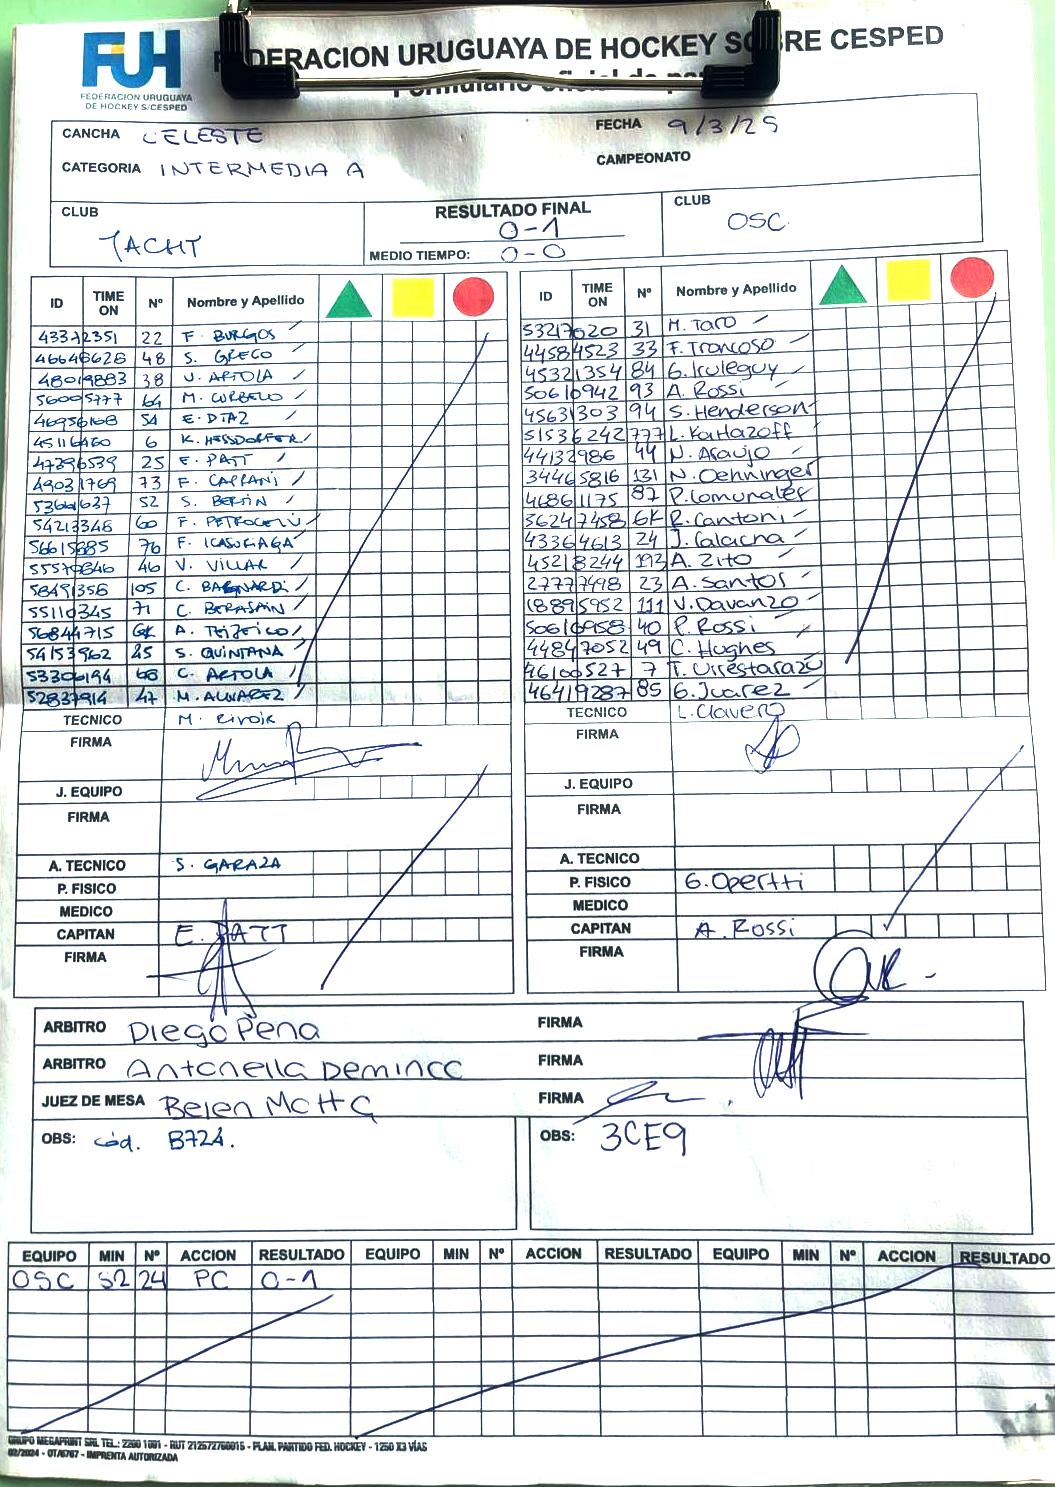 FUH
FEDERACION URUGUAYA
DE HOCKEY S/CESPED
FEDERACION URUGUAYA DE HOCKEY SOBRE CESPED
Formulario oficial de
CANCHA CELESTE FECHA 9/3/25
CATEGORIA INTERMEDIA A CAMPEONATO
CLUB YACHT RESULTADO FINAL 0-1 CLUB OSC
MEDIO TIEMPO: 0-0
ID TIME ON Nº Nombre y Apellido
43372351 22 F. BURGOS
46646628 48 S. GRECO
48019883 38 V. ARTOLA
56005777 64 M. CURBELO
46956168 54 E. DIAZ
45116460 6 K. HESSDORFER
47296539 25 E. PATT
49031769 73 F. CAPRANI
53661637 52 S. BERSIN
54213346 60 F.
56615885 76 F.
55579846 46 V. VILLAR
58491358 105 C. BAGNARDI
55110345 71 C. BERASAIN
56844715 GK A.
54153962 45 S. QUINTANA
53306194 68 C. ARTOLA
52837914 47 M. ALVAREZ
TECNICO M. RIVOIR
FIRMA
J. EQUIPO
FIRMA
A. TECNICO S. GARAZA
P. FISICO
MEDICO
CAPITAN E. PATT
FIRMA
ID TIME ON Nº Nombre y Apellido
53217020 31 M. Taro
44584523 33 F. Troncoso
45321354 84 G. Iruleguy
50610942 93 A. Rossi
45631303 94 S. Henderson
51536242 777 L. Kahazoff
44132986 44 N. Araujo
34465816 131 N. Oehninger
46861175 87 P. Comunales
36247458 GK R. Cantoni
43364613 24 J. Calacha
45218244 193 A. Zito
27777498 23 A. Santos
18895952 111 V. Davanzo
50610958 40 P. Rossi
44847052 49 C. Hughes
46100527 7 T. Urrestarazu
46419287 85 G. Juarez
TECNICO L. Clavero
FIRMA
J. EQUIPO
FIRMA
A. TECNICO
P. FISICO G. Opertti
MEDICO
CAPITAN A. Rossi
FIRMA
ARBITRO Diego Pena FIRMA
ARBITRO Antonella Deminco FIRMA
JUEZ DE MESA Belen Motta FIRMA
OBS: Cód. B724. OBS: 3CE9
EQUIPO MIN Nº ACCION RESULTADO EQUIPO MIN Nº ACCION RESULTADO EQUIPO MIN Nº ACCION RESULTADO
OSC 52 24 PC 0-1
GRUPO MEGAPRINT SRL TEL.: 2200 1001 - RUT 212572760015 - PLAN. PARTIDO FED. HOCKEY - 1250 X3 VÍAS
02/2024 - OT/6767 - IMPRENTA AUTORIZADA